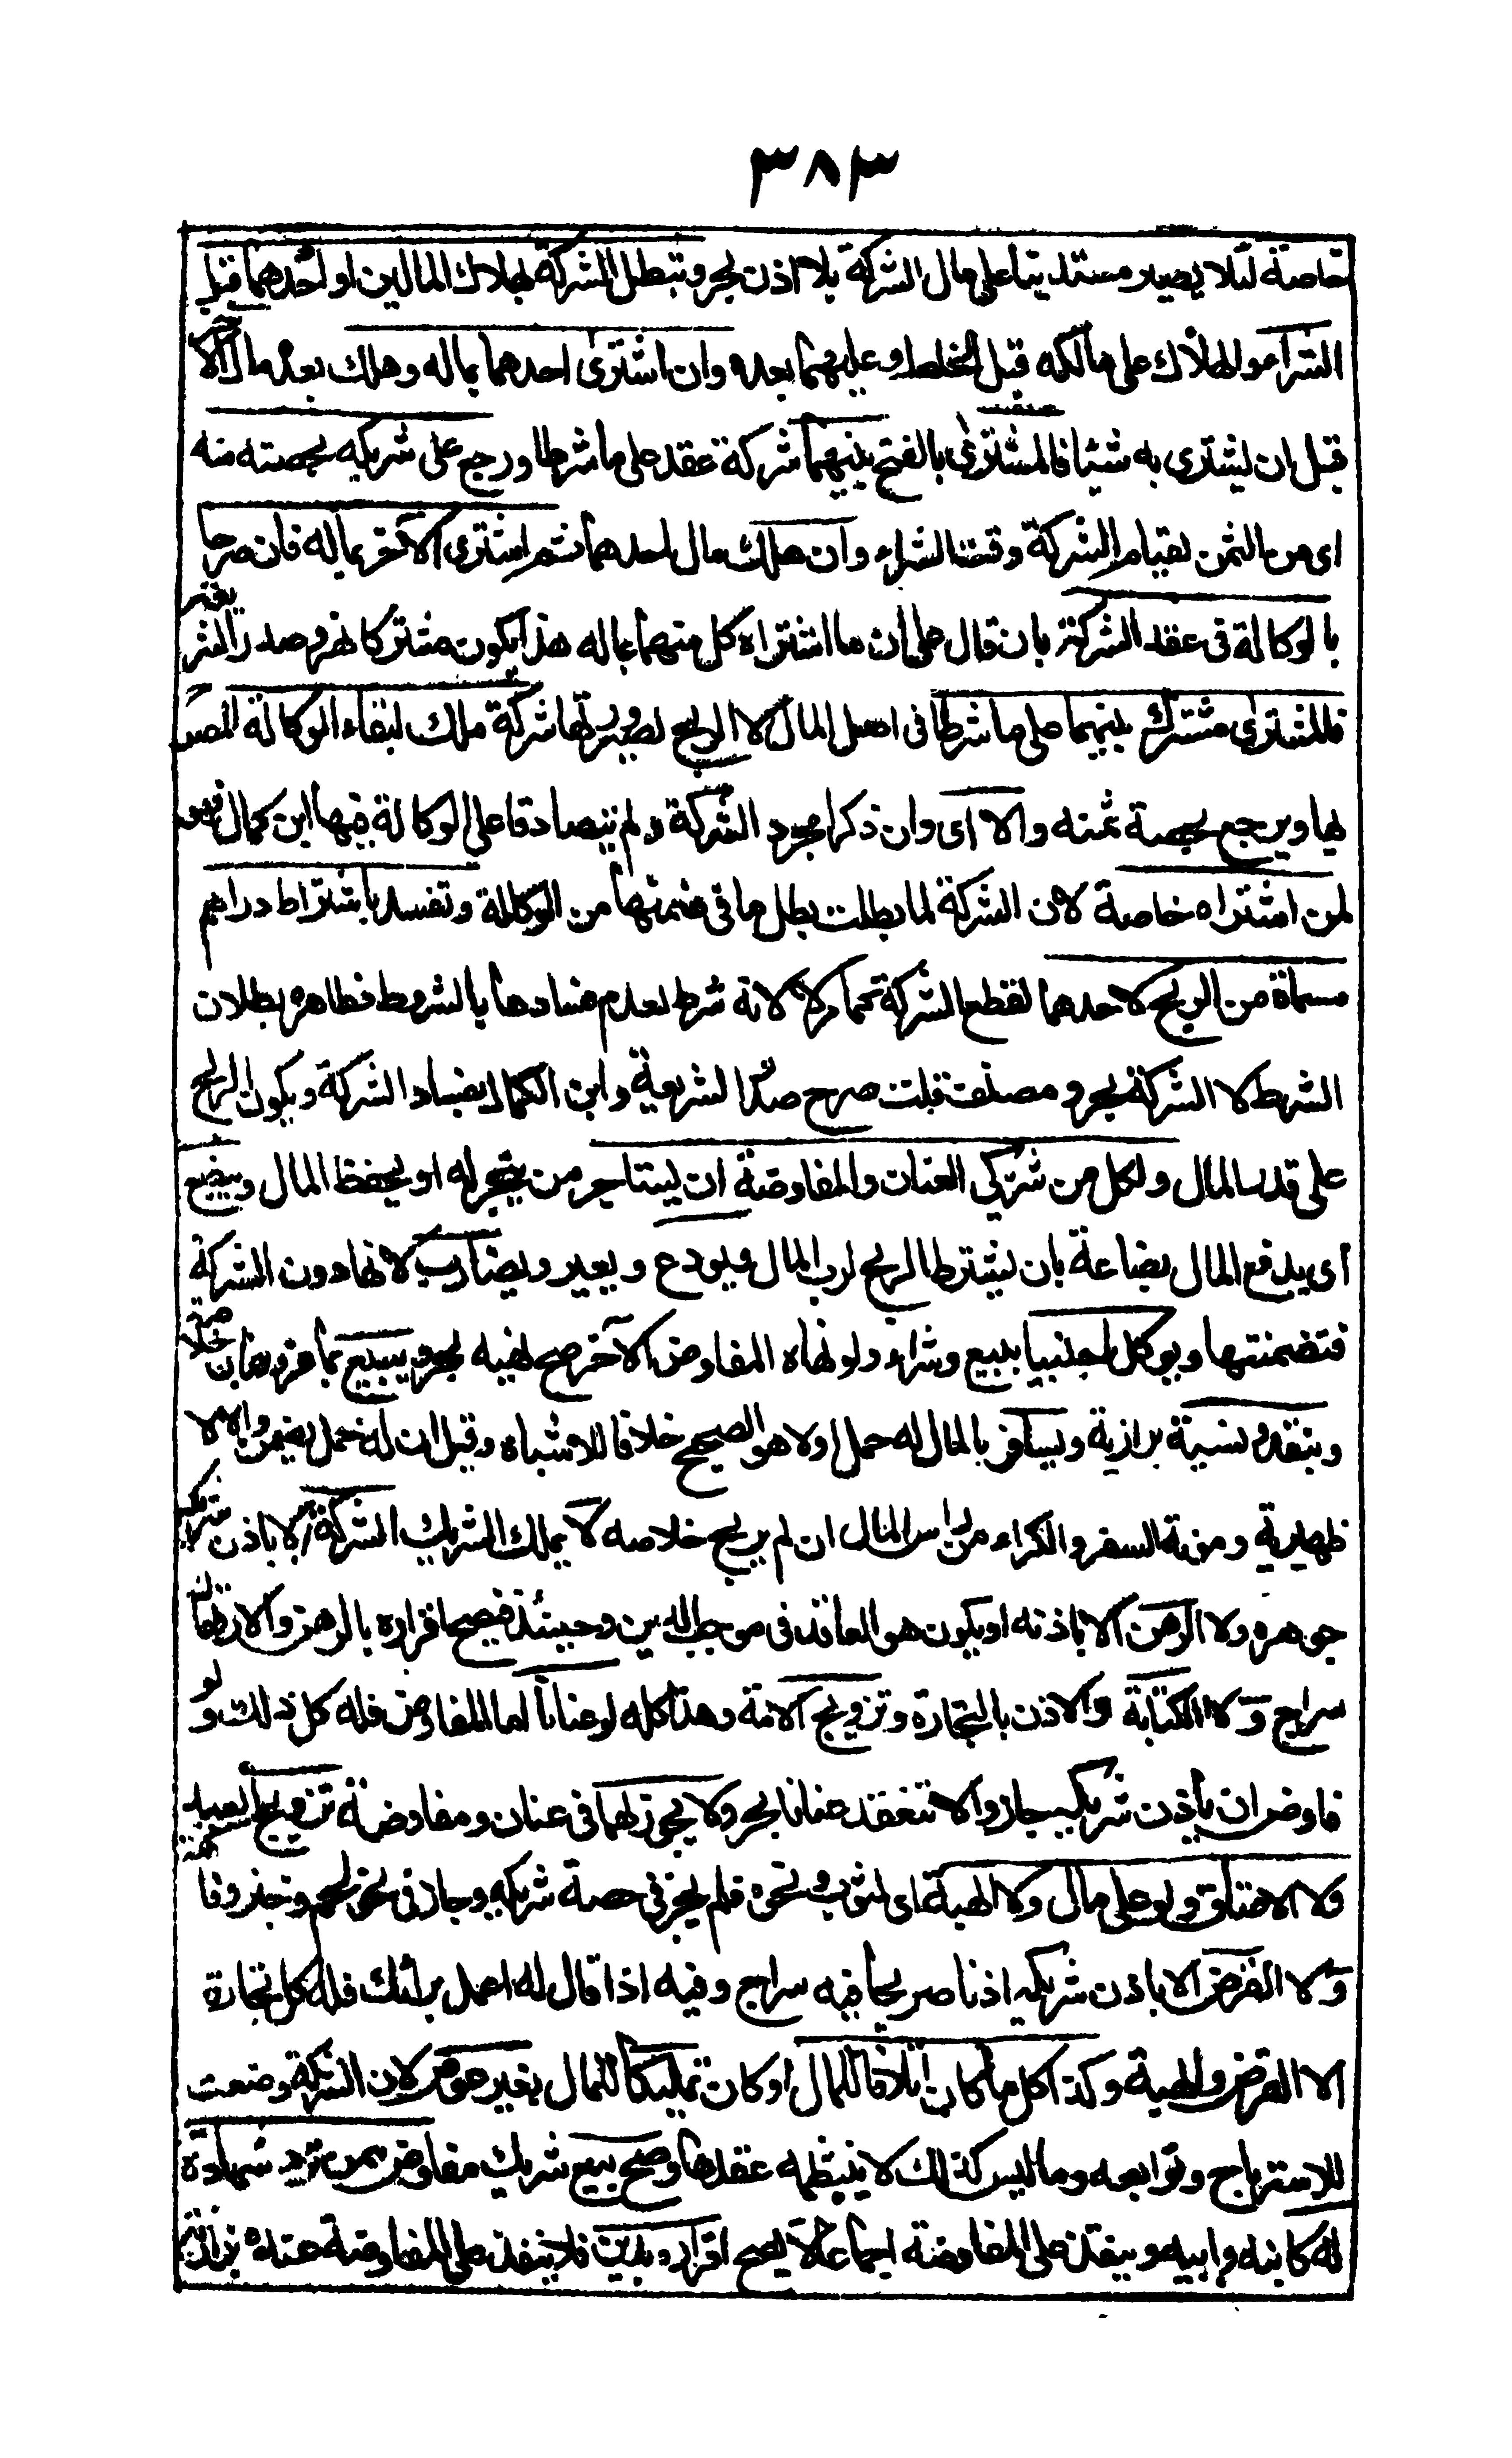 ٣٨٣
خاصة لئلا يصير مستدينا على مال الشركة بلا اذن بحر وتبطل الشركة بهلاك المالين او احدهما قبل
الشراء والهلاك على مالكه قبل الخلط وعليهما بعده وان اشترى احدهما بماله وهلك بعده مال الآخر
قبل ان يشترى به شيئا فالمشترى بالفتح بينهما شركة عقد على ما شرطا ورجع على شريكه بحصته منه
اى من الثمن لقيام الشركة وقت الشراء وان هلك مال احدهما ثم اشترى الآخر بماله فان صرحا
بالوكالة فى عقد الشركة بان قال على ان ما اشتراه كل منهما بماله هذا يكون مشتركا نهر وصدر الشريعة
فالمشترى مشترك بينهما على ما شرطا فى اصل المال لا الربح لصيرورتها شركة ملك لبقاء الوكالة المصرح
بها ويرجع بحصة ثمنه والا اى وان ذكرا مجرد الشركة ولم يتصادقا على الوكالة فيها ابن كمال فهو
لمن اشتراه خاصة لان الشركة لما بطلت بطل ما فى ضمنها من الوكالة وتفسد باشتراط دراهم
مسماة من الربح لاحدهما لقطع الشركة كما مر لا لانه شرط لعدم فسادها بالشروط فظاهره بطلان
الشرط لا الشركة بحر ومصنف قلت صرح صدر الشريعة وابن الكمال بفساد الشركة ويكون الربح
على قدر المال ولكل من شريكى العنان والمفاوضة ان يستاجر من يتجر له او يحفظ المال ويبضع
اى يدفع المال بضاعة بان يشترط الربح لرب المال ويودع ويعير ويضارب لانها دون الشركة
فتضمنتها ويوكل اجنبيا ببيع وشراء ولو نهاه المفاوض الآخر صح نهيه بحر ويبيع بما عز وهان خلاصة
وبنقد ونسية بزازية ويسافر بالمال له حمل اولا هو الصحيح خلافا للاشباه وقيل ان له حمل يضمن والا لا
ظهيرية ومونة السفر والكراء من راس المال ان لم يربح خلاصه لا يملك الشريك الشركة الا باذن شريكه
جوهره ولا الرهن الا باذنه او يكون هو العاقد فى موجب الدين وحينئذ فيصح اقراره بالرهن والارتهان
سراج ولا الكتابة والاذن بالتجارة وتزويج الامة وهذا كله لو عنانا اما المفاوض فله كل ذلك ولو
فاوض ان باذن شريكه جاز والا تنعقد عنانا بحر ولا يجوز لهما فى عنان ومفاوضة تزويج العبد
ولا الاعتاق ولو على مال ولا الهبة اى لثوب ونحوه فلم يجز فى حصة شريكه وجاز فى نحو لحم وخبز وفاكهة
ولا القرض الا باذن شريكه اذنا صريحا فيه سراج وفيه اذا قال له اعمل برائك فله كل تجارة
الا القرض والهبة وكذا كل ما كان اتلافا للمال او كان تمليكا للمال بغير عوض لان الشركة وضعت
للاسترباح وتوابعه وما ليس كذلك لا ينتظمه عقدها وصح بيع شريك مفاوض ممن ترد شهادته
له كابنه وابيه وينفذ على المفاوضة اجماعا لا يصح اقراره بدين فلا ينفذ على المفاوضة عنده بزازية